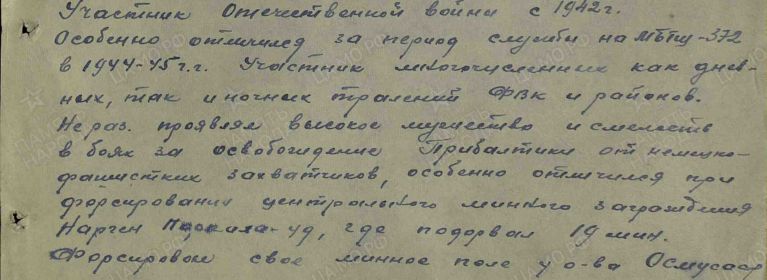 Участник Отечественной войны с 1942г.
Особенно отличился за период службы на МБТЩ-372
в 1944-45г.г. Участник многочисленных как днев-
ных, так и ночных тралений ФВК и районов.
Не раз. проявлял высокое мужество и смелость
в боях за освобождение Прибалтики от немецко-
фашистких захватчиков, особенно отличился при
форсировании центрального минного заграждения
Нарген -удд, где подорвал 19 мин.
Форсировал свое минное поле у о-ва Осмусаар